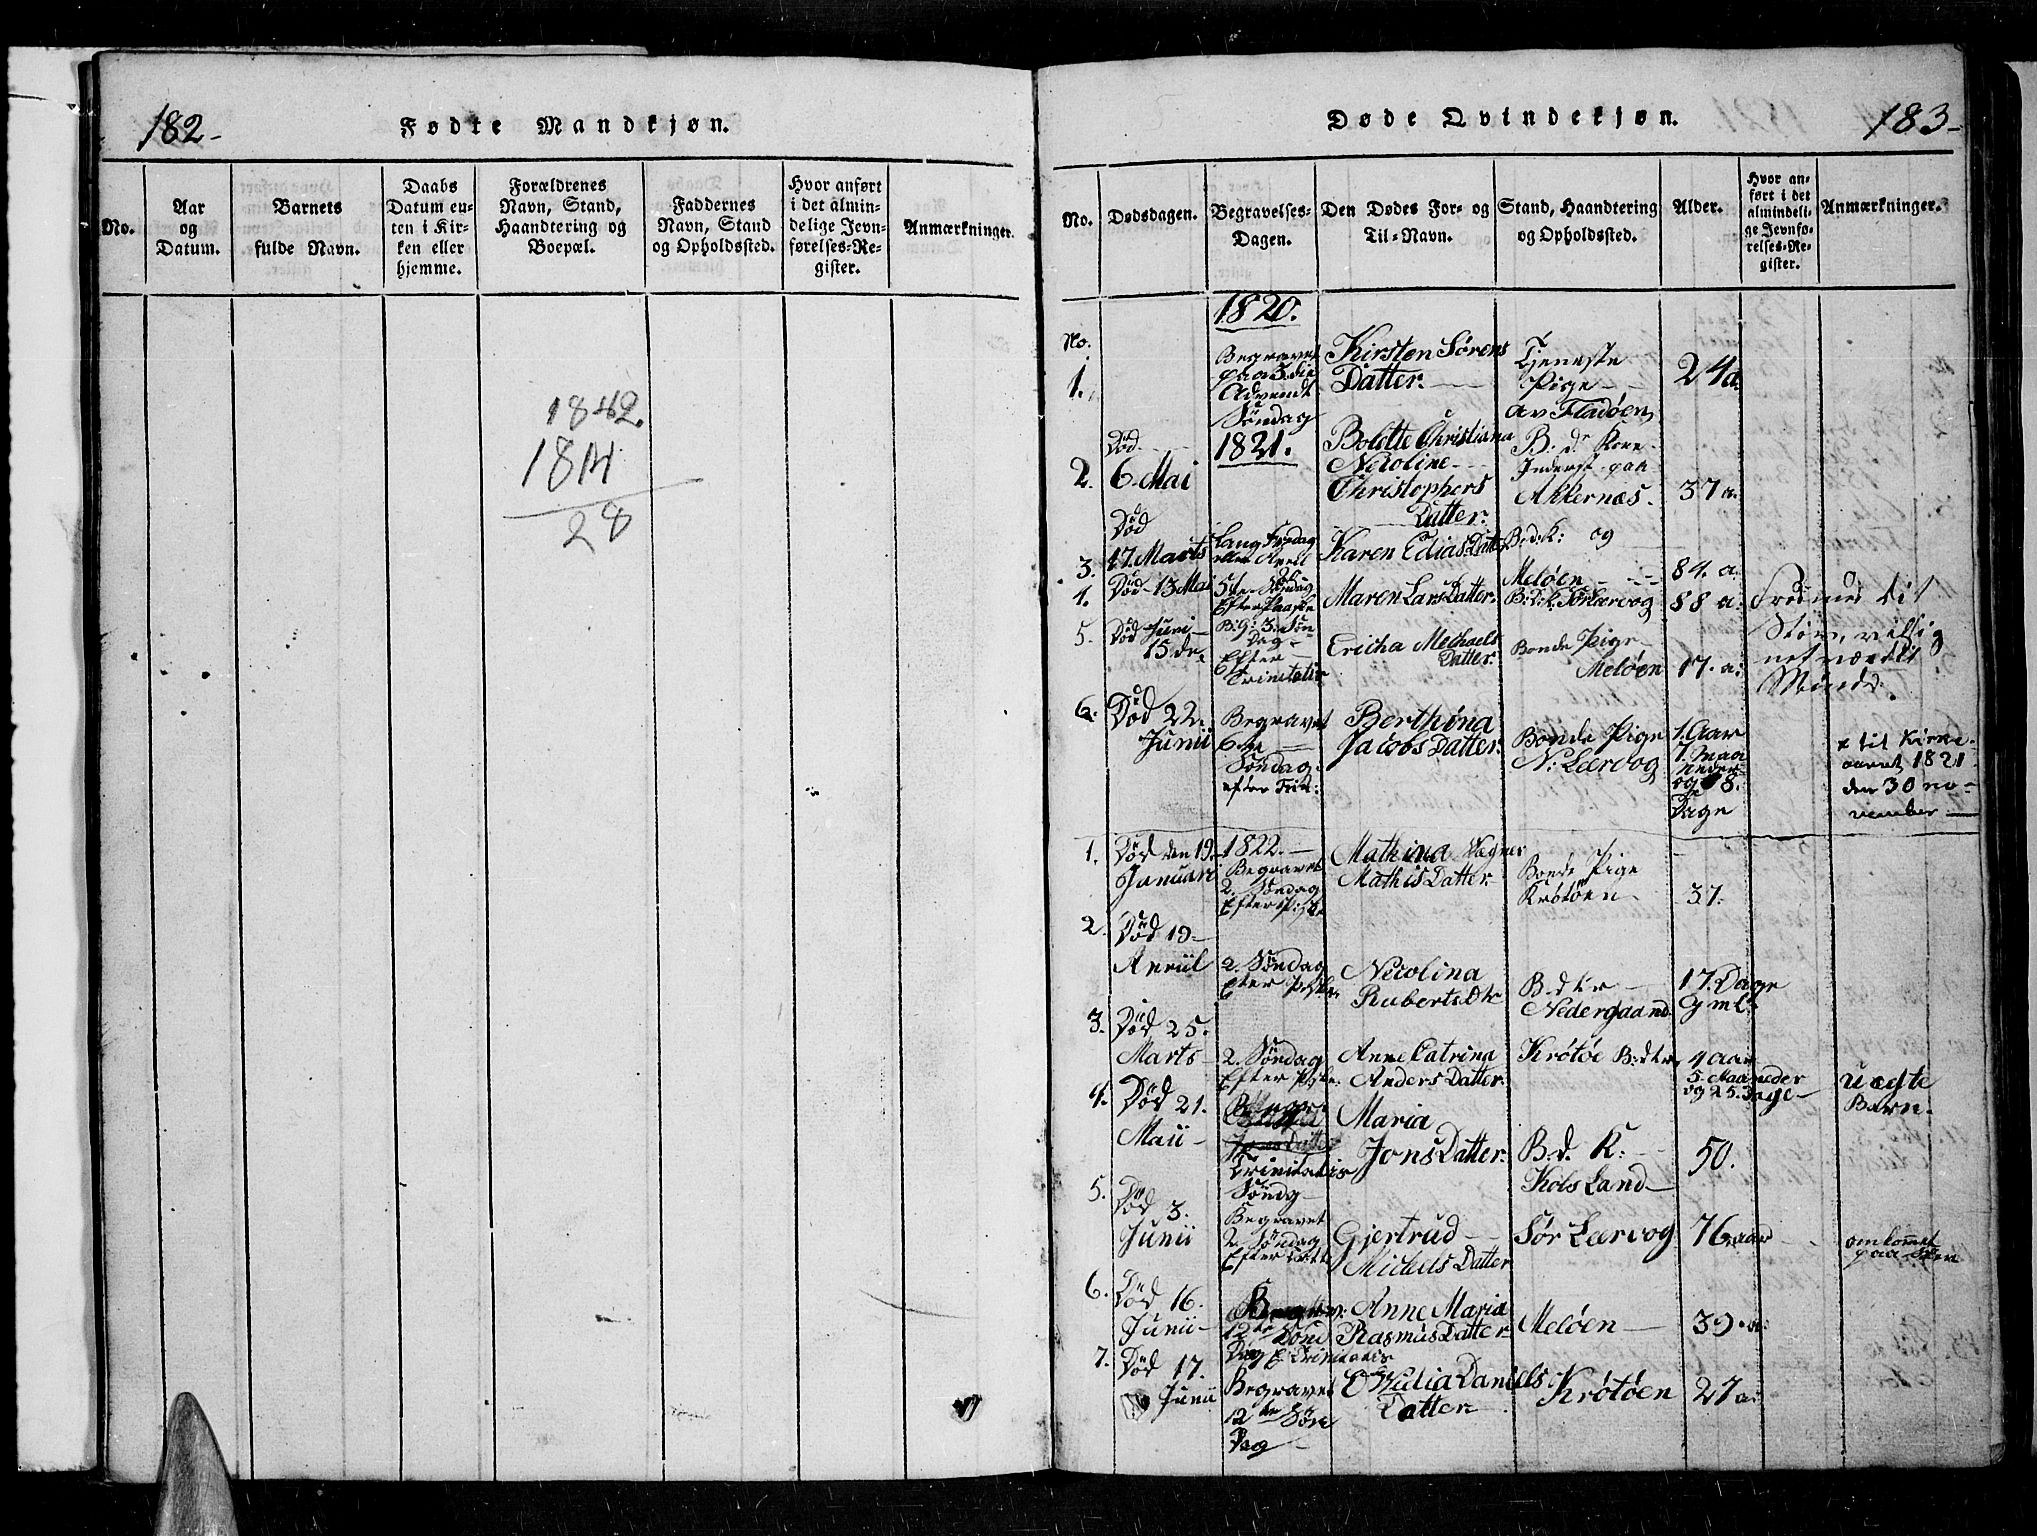 182-
Fødte Mandkjøn.
No.
Aar
og
Datum.
Barnets
fulde Navn.
Daabs
Datum en-
ten i Kir-
ken eller
hjemme.
Forældrenes
Navn, Stand,
Haandtering og
Boepæl.
Faddernes
Navn, Stand
og Opholdssted.
Hvor anført
i det almin-
delige Jevn-
førelses-Re-
gister.
Anmærkninger.
1842.
1814
28
Døde Qvindekjøn.
183-
No.
Dødsdagen.
Begravelses-
Dagen.
Den Dødes For- og
Til-Navn.
Stand, Haandtering
og Opholdssted.
Alder.
Hvor an-
ført i det
almindeli-
ge Jevnfø-
relses-Re-
gister.
Anmærkninger.
1820.
No.
1.
Begravet
paa 3.die
Advendt
Søndag
Kirsten Sørens
Datter.
Tjeneste
Pige
av Fladøen
24 a.
Død
2. 6 Mai
1821.
Bolette Christiana
Nicoline
Christophers
Datter.
B: d: Kone
Inderst paa
Ahkernæs.
37 a.
Død
3. 17. Marts
Lang Fredag
Karen Edias Datter
B: d: k: og
Meløen
84. a.
Død 13 Mai
5te Søndag
Efter Paaske
Maren Lars Datter.
B: d: k. Sørlærvog
88 a.
5. Død Juni
15 de
B: g: 3. Søn-
Dag
Efter
Trinitatis
Ericha Mechaels
Datter.
Bonde Pige
Meløen
17. a.
6. Død 22.
Junii
Begravet
6te
Søndag
efter Trin:
Berthøna
Jacobs Datter.
Bonde Pige
N: Leervog
1. Aar
7. Maa
neder
og 8.
Dage
x til Kirke-
aaret 1821
den 30 no-
vember
1. Død den 19.
Januari
1822.
Begravet
2. Søndag
Efter
Mathina Wægner
Mathis Datter.
Bonde Pige
Krøtøen
37.
2. Død 19
Apriil
2. Søndag
Efter
Nicolina
Ruberts Dtr
B: dtr
Nedergaard
17. Dage
gml
3. Død 25.
Marts
2. Søndag
Efter
Anne Catrina
Anders Datter.
Krøtøe B: dtr
4 aar
5. Maaneder
og 25. Dage
uægte
Barn.
4. Død 21.
Maii
Trinitatis
Søndg
Maria
Jons Datter.
B: d. K:
Kols Land
50.
5. Død 3.
Junii
Begravet
2. Søndag
Efter
Gjertrud
Michels Datter
Sør Leervog
76 aar
omkommet
paa Søen
6. Død 16.
Junii
12te Sønd
Dag E Trinitatis
Anne Maria
Rasmus Datter
Meløen
39. a.
7. Død 17.
Junii
Begravet
12te Søn
Dag
Daniels
Datter
Krøtøen
27 a.